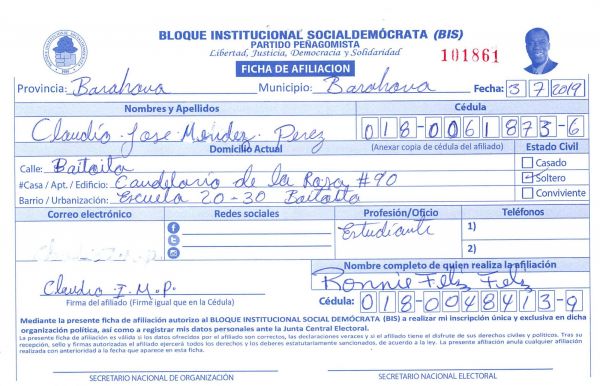 BLOQUE INSTITUCIONAL SOCIALDEMÓCRATA (BIS)
PARTIDO PEÑAGOMISTA
Libertad, Justicia, Democracia y Solidaridad
101861
FICHA DE AFILIACION
Provincia: Barahona Municipio: Barahona Fecha: 3 7 2019
Nombres y Apellidos Cédula
Claudio Jose Mendez Perez 018-0061873-6
Domicilio Actual (Anexar copia de cédula del afiliado) Estado Civil
Calle: Baitoita Casado
#Casa / Apt. / Edificio: Candelario de la Rosa #90 Soltero
Barrio / Urbanización: Escuela 20-30 Baitoita Conviviente
Correo electrónico Redes sociales Profesión/Oficio Teléfonos
Estudiante 1)
2)
Nombre completo de quien realiza la afiliación
Claudio J. M. P. Bonnie Feliz Feliz
Firma del afiliado (Firme igual que en la Cédula) Cédula: 018-0048413-9
Mediante la presente ficha de afiliación autorizo al BLOQUE INSTITUCIONAL SOCIAL DEMÓCRATA (BIS) a realizar mi inscripción única y exclusiva en dicha
organización política, así como a registrar mis datos personales ante la Junta Central Electoral.
La presente ficha de afiliación es válida si los datos ofrecidos por el afiliado son correctos, las declaraciones veraces y si el afiliado tiene el disfrute de sus derechos civiles y políticos. Tras su
recepción, sello y firmas autorizadas el afiliado ejercerá todos los derechos y los deberes estatutariamente sancionados, de acuerdo a la ley. La presente afiliación anula cualquier afiliación
realizada con anterioridad a la fecha que aparece en esta ficha.
SECRETARIO NACIONAL DE ORGANIZACIÓN SECRETARIO NACIONAL ELECTORAL